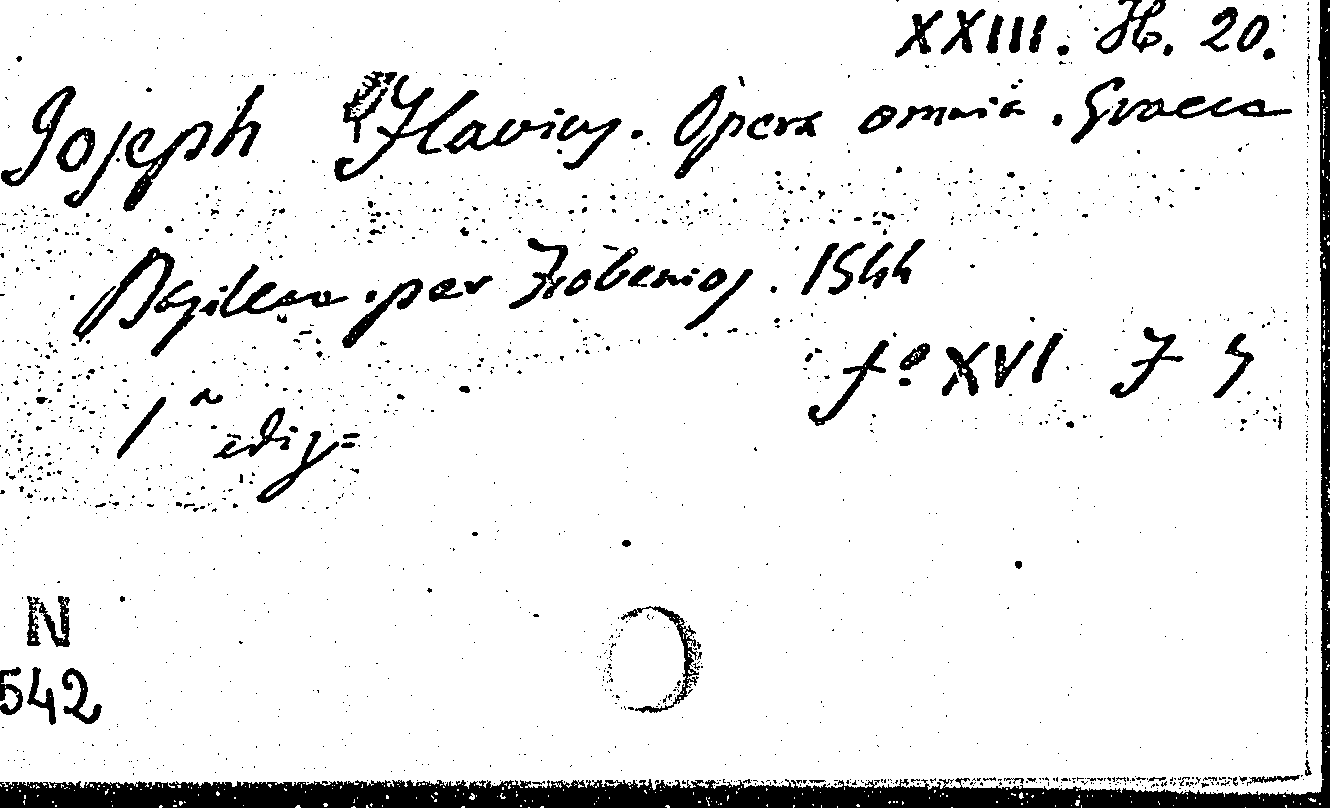 XXIII. H. 20.
Joseph Flavius. Opera omnia. Graeca
Basileae. per Frobenios. 1544
fº XVI F 5
1ª ediz=
N
542